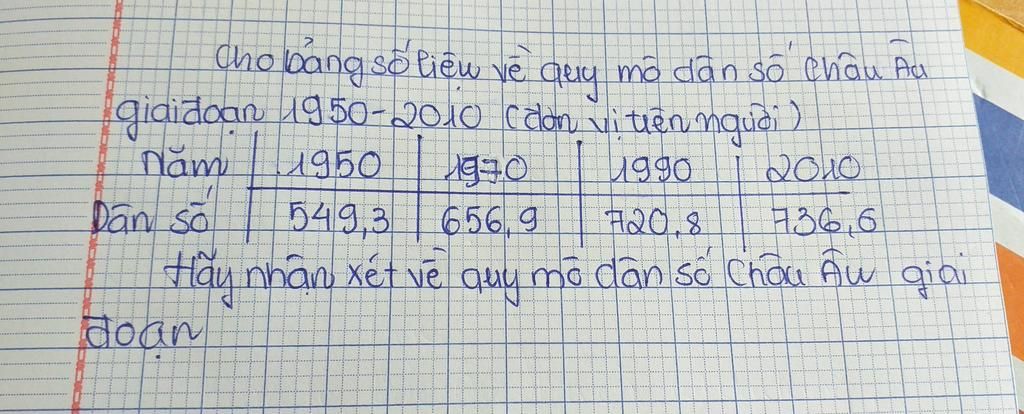 Cho bảng số liệu về quy mô dân số Châu Âu
giai đoạn 1950-2010 (đơn vị triệu người)
Năm 1950 1970 1990 2010
Dân số 549,3 656,9 720,8 736,6
Hãy nhận xét về quy mô dân số Châu Âu giai
đoạn